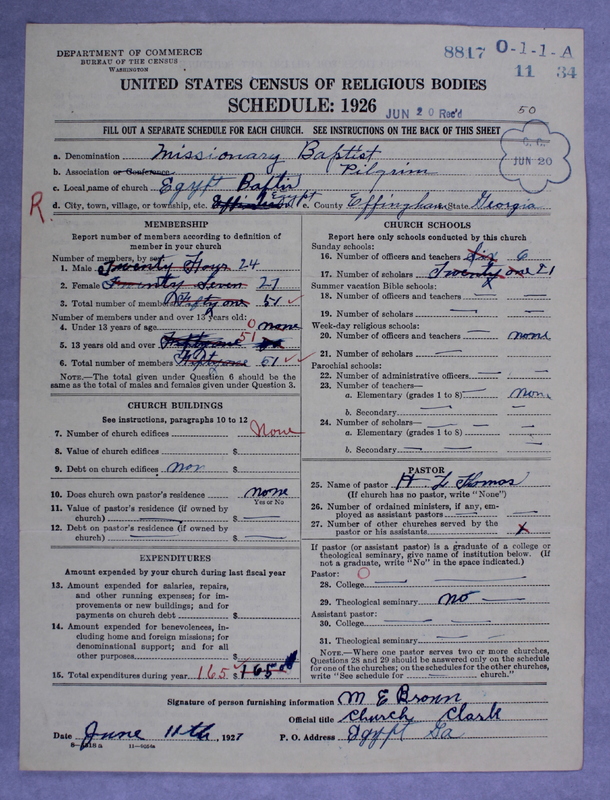 DEPARTMENT OF COMMERCE
BUREAU OF THE CENSUS
WASHINGTON
8817 O-1-1-A
11 34
UNITED STATES CENSUS OF RELIGIOUS BODIES
SCHEDULE: 1926
JUN 20 Rec'd
50
FILL OUT A SEPARATE SCHEDULE FOR EACH CHURCH. SEE INSTRUCTIONS ON THE BACK OF THIS SHEET
C. C.
JUN 20
a. Denomination Missionary Baptist
b. Association or Conference Pilgrim
c. Local name of church Egypt Baptis
R
d. City, town, village, or township, etc. Egypt e. County Effingham State Georgia
MEMBERSHIP
Report number of members according to definition of
member in your church
Number of members, by sex:
1. Male Twenty Foyr 24
2. Female Twenty Seven 27
3. Total number of members Fifty one 51 ✓
Number of members under and over 13 years old:
4. Under 13 years of age 0 none
5. 13 years old and over Fifty one 51
6. Total number of members Fifty one 51 ✓ ✓
NOTE.—The total given under Question 6 should be the
same as the total of males and females given under Question 3.
CHURCH BUILDINGS
See instructions, paragraphs 10 to 12
7. Number of church edifices None
8. Value of church edifices $
9. Debt on church edifices non $
10. Does church own pastor's residence none
Yes or No
11. Value of pastor's residence (if owned by
church) $
12. Debt on pastor's residence (if owned by
church) $
EXPENDITURES
Amount expended by your church during last fiscal year
13. Amount expended for salaries, repairs,
and other running expenses; for im-
provements or new buildings; and for
payments on church debt $
14. Amount expended for benevolences, in-
cluding home and foreign missions; for
denominational support; and for all
other purposes $
15. Total expenditures during year 165 $ 165
CHURCH SCHOOLS
Report here only schools conducted by this church
Sunday schools:
16. Number of officers and teachers Six 6
17. Number of scholars Twenty one 21
Summer vacation Bible schools:
18. Number of officers and teachers
19. Number of scholars
Week-day religious schools:
20. Number of officers and teachers none
21. Number of scholars
Parochial schools:
22. Number of administrative officers
23. Number of teachers—
a. Elementary (grades 1 to 8) non
b. Secondary
24. Number of scholars—
a. Elementary (grades 1 to 8)
b. Secondary
PASTOR
25. Name of pastor H L Thomas
(If church has no pastor, write "None")
26. Number of ordained ministers, if any, em-
ployed as assistant pastors
27. Number of other churches served by the
pastor or his assistants x
If pastor (or assistant pastor) is a graduate of a college or
theological seminary, give name of institution below. (If
not a graduate, write "No" in the space indicated.)
Pastor: O
28. College
29. Theological seminary no
Assistant pastor:
30. College
31. Theological seminary
NOTE.—Where one pastor serves two or more churches,
Questions 28 and 29 should be answered only on the schedule
for one of the churches; on the schedules for the other churches,
write "See schedule for church."
Signature of person furnishing information M E Brown
Official title Church Clark
Date June 11th, 1927 P. O. Address Egypt Ga